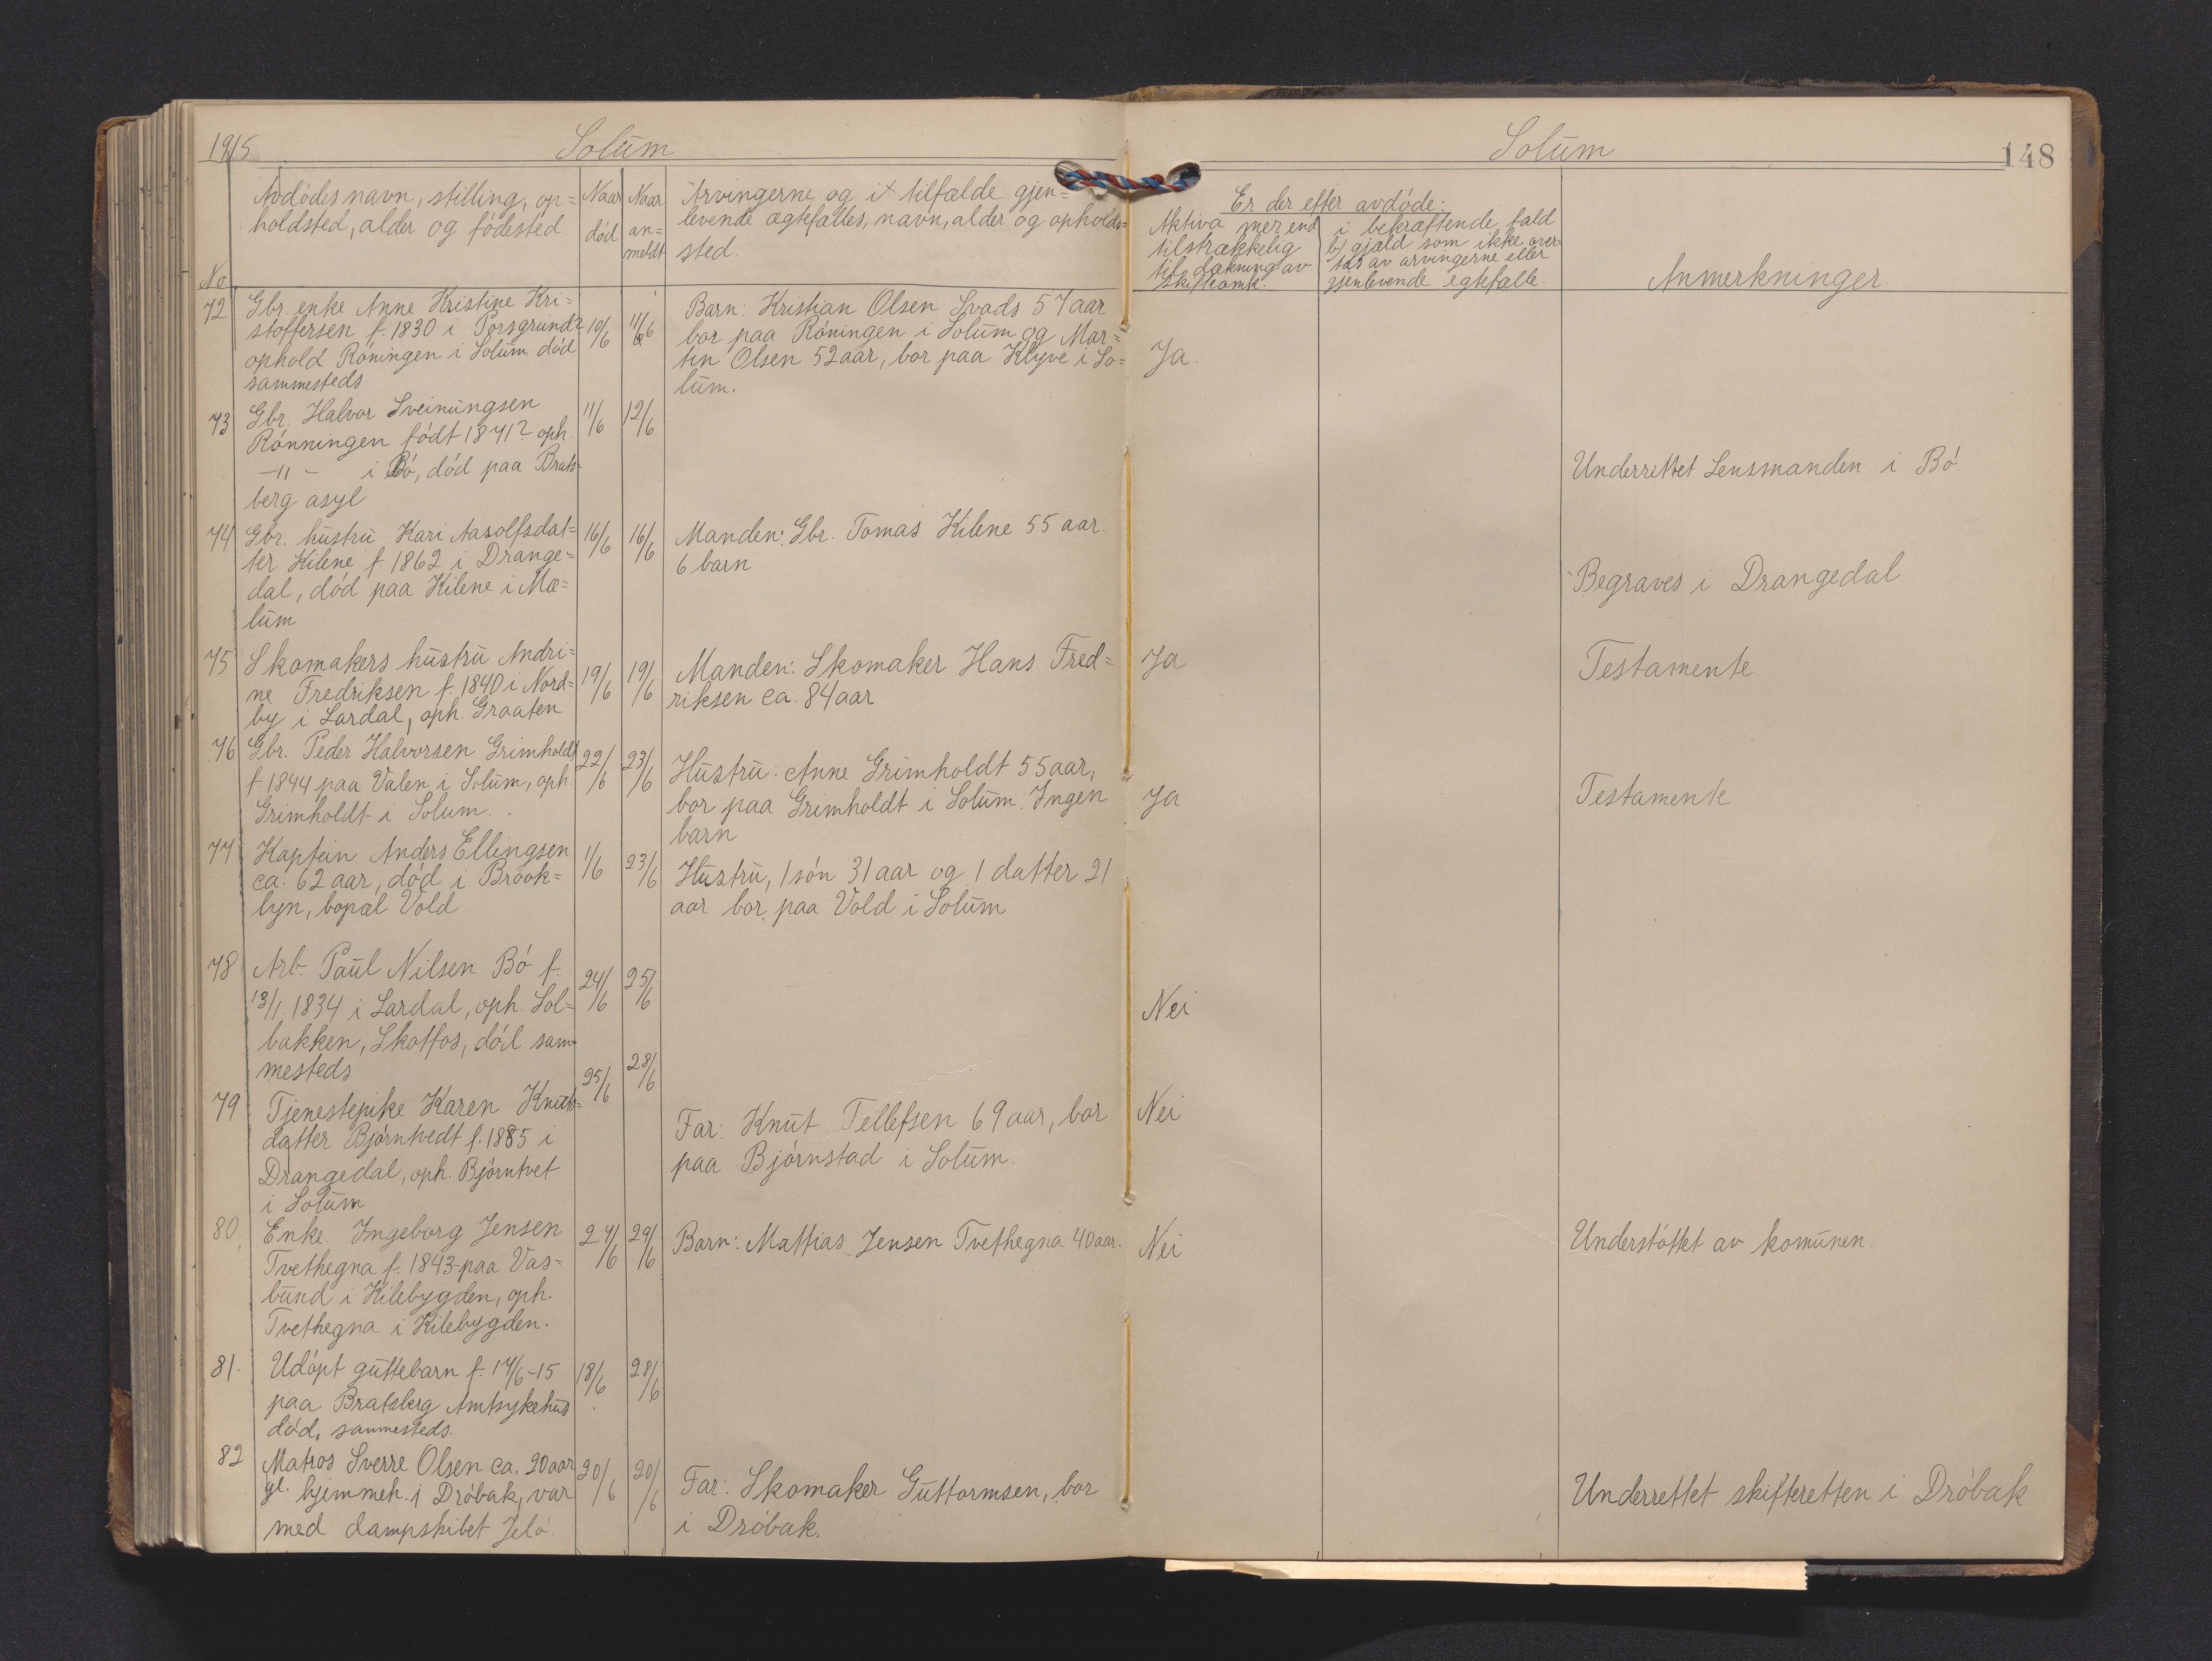 1915 Solum
Solum 148
No
Avdødes navn, stilling, op=
holdsted, alder og fødested
Naar
død
Naar
an=
meldt
Arvingerne og i tilfælde gjen=
levende ægtefælles, navn, alder og opholds=
sted.
Er der efter avdøde:
Aktiva mer end
tilstrækkelig
til dækning av
skifteomk.
i bekræftende fald
b) gjæld som ikke over=
tas av arvingerne eller
gjenlevende egtefælle.
Anmerkninger
72 Gbr. enke Anne Kristine Kri=
stoffersen f. 1830 i Porsgrund?
ophold Röningen i Solum död
sammesteds
10/6 11/6
Barn: Kristian Olsen Svads 57 aar
bor paa Röningen i Solum og Mar=
tin Olsen 52 aar, bor paa Klyve i So=
lum.
Ja.
73 Gbr. Halvor Sveinungsen
Rönningen födt 1871? oph.
-"- i Bö, död paa Brats=
berg asyl
11/6 12/6
Underrettet Lensmanden i Bö.
74 Gbr. hustru Kari Aasolfsdat=
ter Kilene f. 1862 i Drange=
dal, död paa Kilene i Mæ=
lum
16/6 16/6
Manden: Gbr. Tomas Kilene 55 aar.
6 barn
Begraves i Drangedal
75 Skomakers hustru Andri=
ne Fredriksen f. 1840 i Nord=
by i Lardal, oph. Graaten
19/6 19/6
Manden: Skomaker Hans Fred=
riksen ca. 84 aar
Ja
Testamente
76 Gbr. Peder Halvorsen Grimholdt
f. 1844 paa Valen i Solum, oph.
Grimholdt i Solum.
22/6 23/6
Hustru: Anne Grimholdt 55 aar,
bor paa Grimholdt i Solum. Ingen
barn
Ja
Testamente
77 Kaptein Anders Ellingsen
ca. 62 aar, död i Brook=
lyn, bopæl Vold
1/6 23/6
Hustru, 1 sön 31 aar og 1 datter 21
aar bor paa Vold i Solum
78 Arb. Paul Nilsen Bö f.
13/1. 1834 i Lardal, oph. Sol=
bakken, Skotfos, död sam=
mesteds
24/6 25/6
Nei
79 Tjenestepike Karen Knuts=
datter Björntvedt f. 1885 i
Drangedal, oph. Björntvet
i Solum
25/6 28/6
Far: Knut Tellefsen 69 aar, bor
paa Björnstad i Solum.
Nei
80. Enke Ingeborg Jensen
Tvethegna f. 1843 paa Vas=
bund i Kilebygden, oph.
Tvethegna i Kilebygden.
27/6 29/6
Barn: Mattias Jensen Tvethegna 40 aar.
Nei
Understöttet av komunen.
81. Udöpt guttebarn f. 17/6-15
paa Bratsberg Amtsykehus
död, sammesteds.
18/6 28/6
82 Matros Sverre Olsen ca. 20 aar
gl. hjemmeh. i Dröbak, var
med dampskibet Jelö.
20/6 20/6
Far: Skomaker Guttormsen, bor
i Dröbak.
Underrettet skifteretten i Dröbak